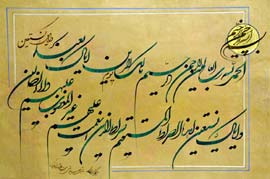 بسم الله الرحمن الرحیم
الحمد لله رب العالمین الرحمن الرحیم مالک یوم الدین ایاک نعبد
و ایاک نستعین اهدنا الصراط المستقیم صراط الذین انعمت علیهم غیر المغضوب علیهم ولا الضالین